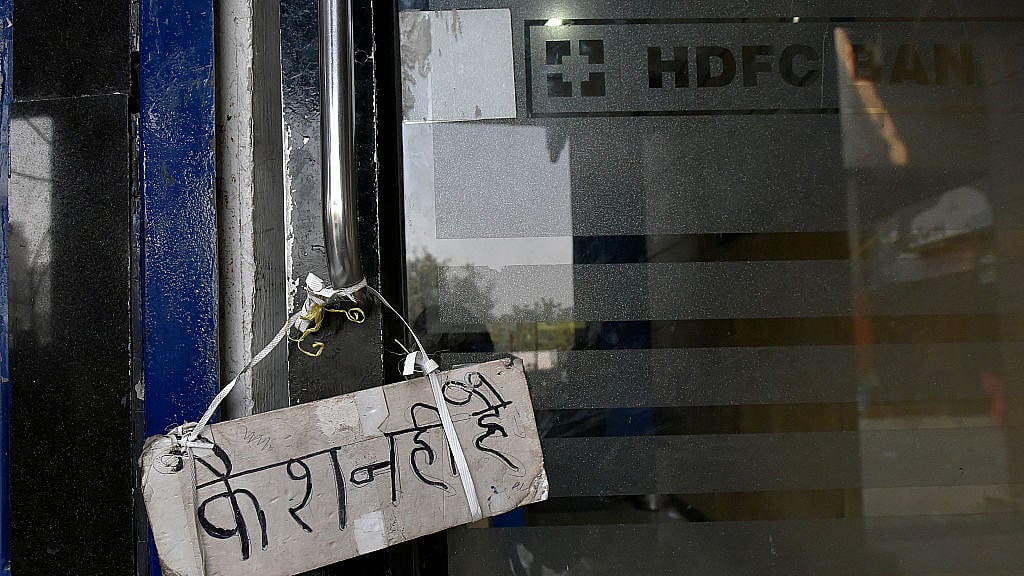 HDFC BAN
कैश नही है